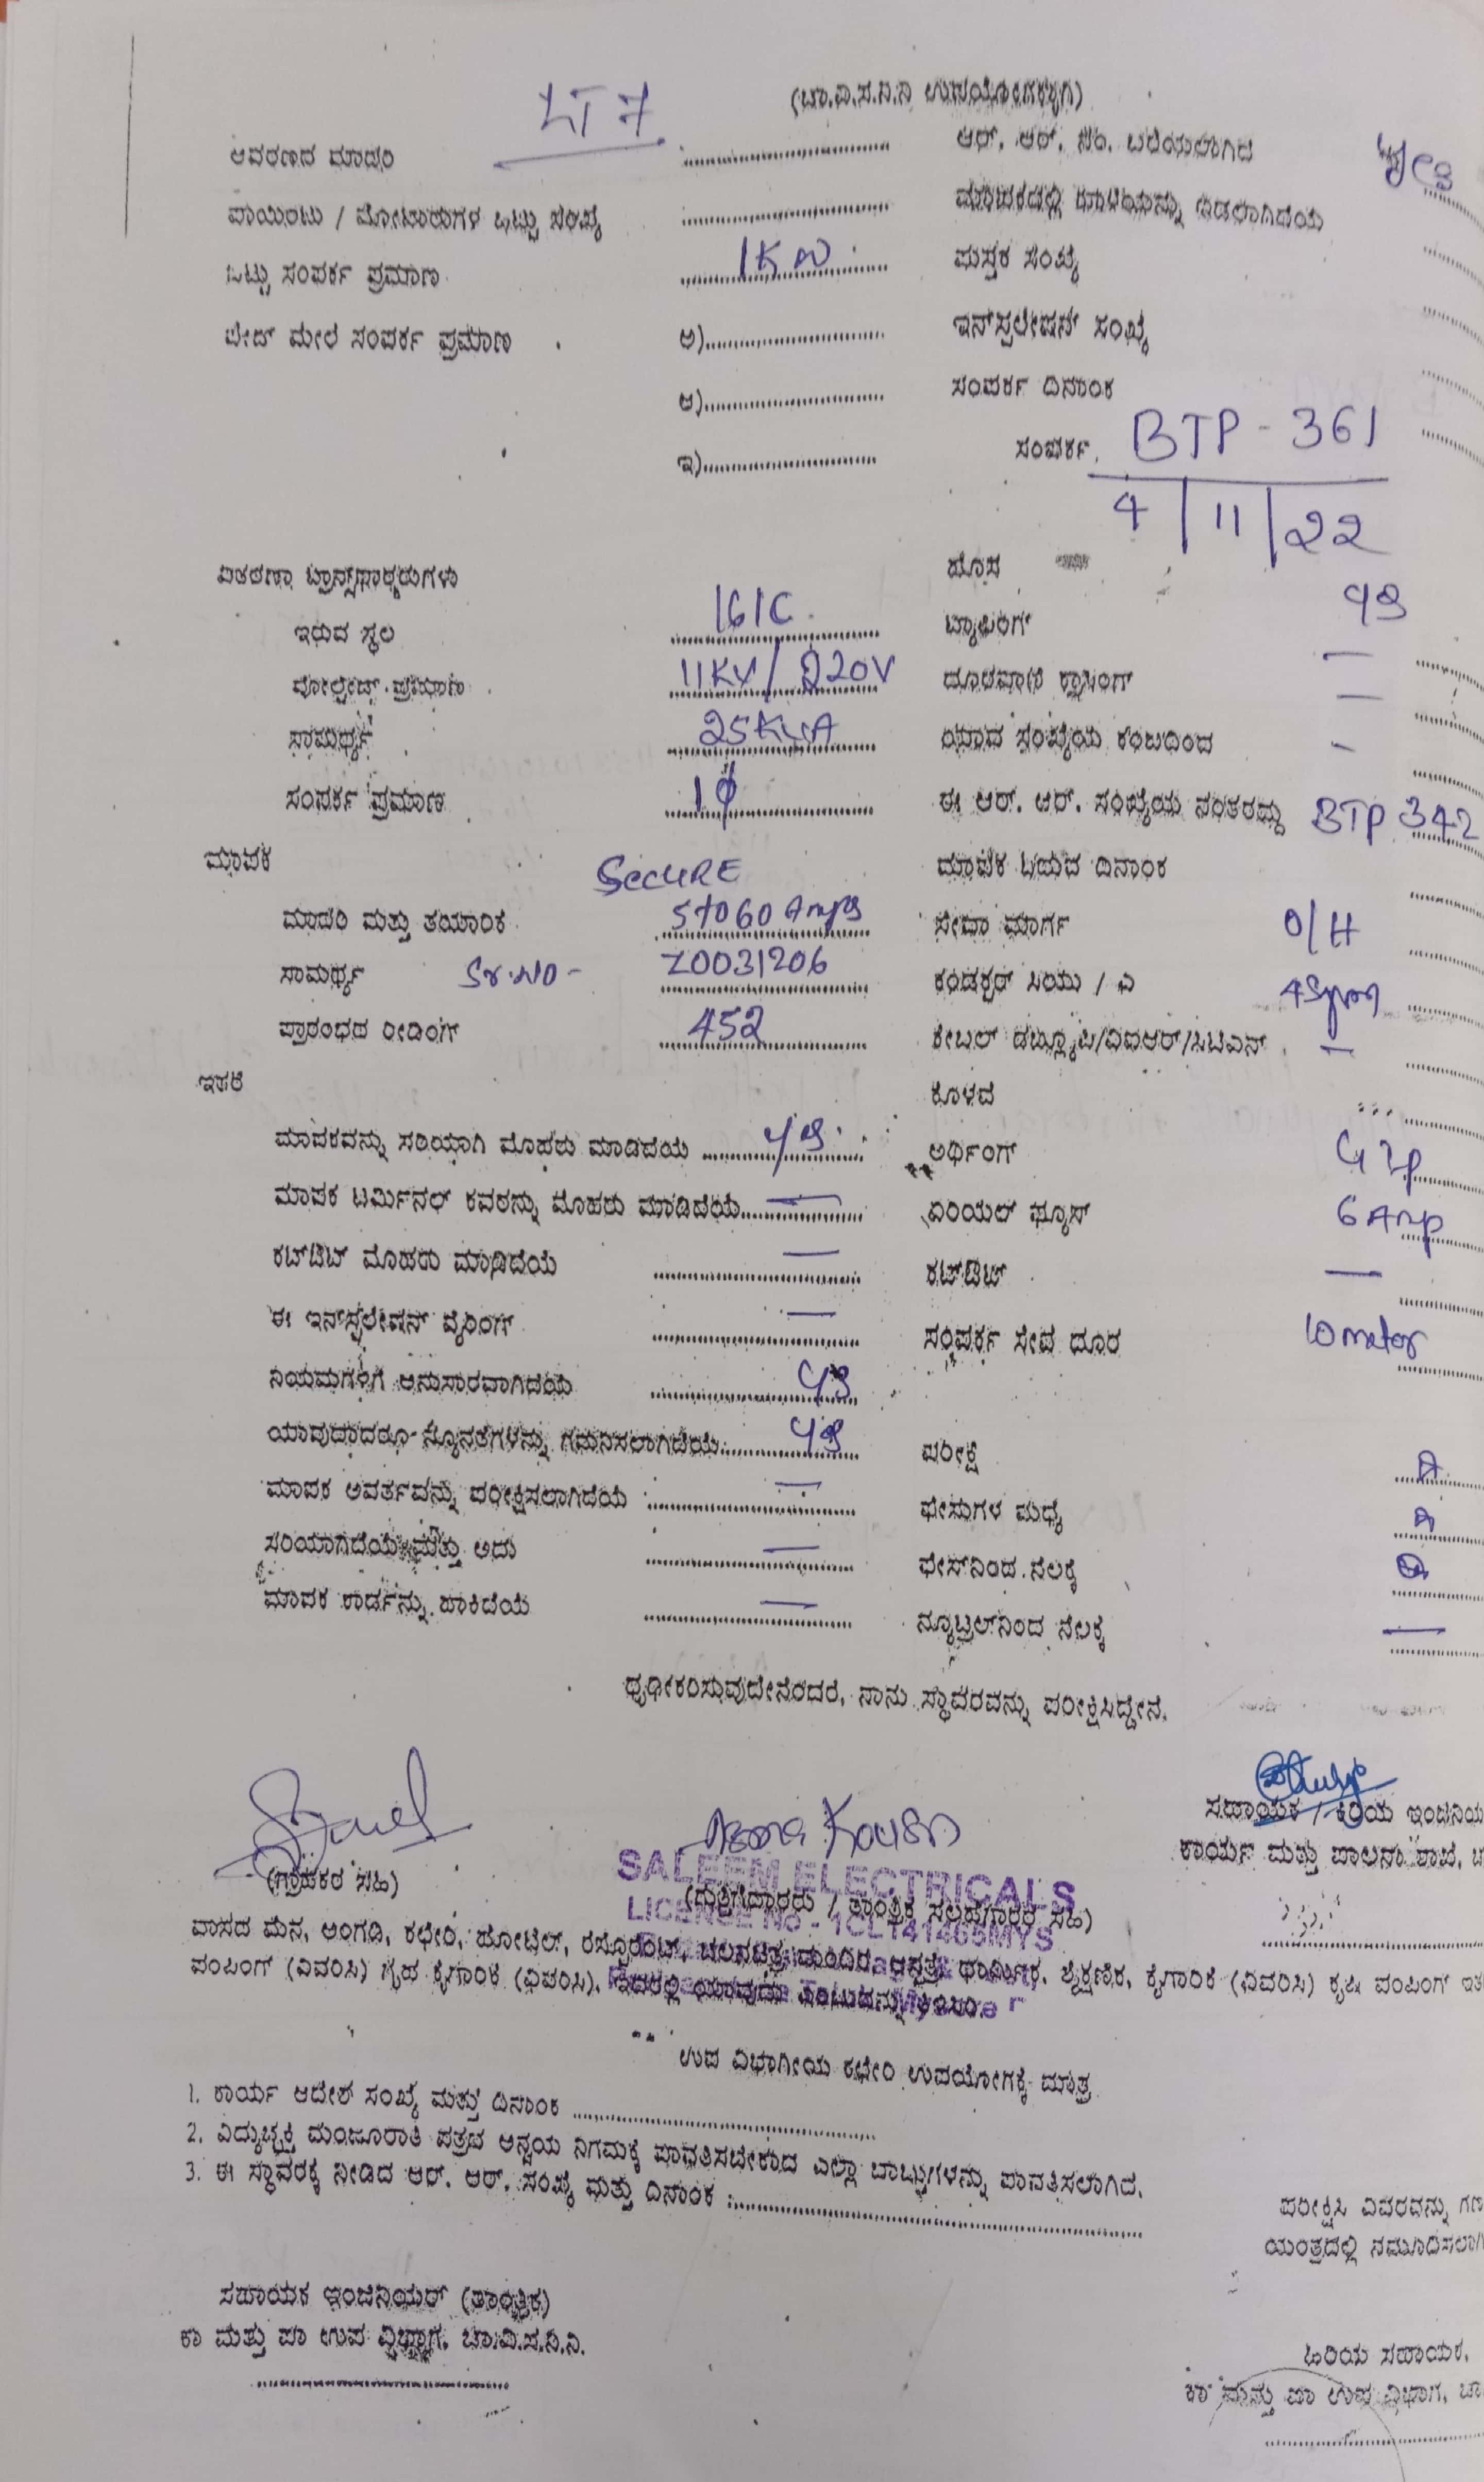 LT 7
(ಚಾ.ವಿ.ಸ.ನಿ.ನಿ ಉಪಯೋಗಕ್ಕಾಗಿ)
ಆವರಣದ ಮಾದರಿ .................... ಆರ್. ಆರ್. ಸಂ. ಬರೆಯಲಾಗಿದೆ yes
ಪಾಯಿಂಟು / ಮೋಟಾರುಗಳ ಒಟ್ಟು ಸಂಖ್ಯೆ .................... ಮಾಪಕದಲ್ಲಿ
ಒಟ್ಟು ಸಂಪರ್ಕ ಪ್ರಮಾಣ 1KW ಪುಸ್ತಕ ಸಂಖ್ಯೆ
ಫೇಸ್ ಮೇಲೆ ಸಂಪರ್ಕ ಪ್ರಮಾಣ ಅ).................... ಇನ್‌ಸ್ಟಲೇಷನ್ ಸಂಖ್ಯೆ
ಆ).................... ಸಂಪರ್ಕ ದಿನಾಂಕ
ಇ).................... ಸಂಪರ್ಕ BTP - 361
4/11/22
ವಿತರಣಾ ಟ್ರಾನ್ಸ್‌ಫಾರ್ಮರುಗಳು ಹೊಸ
ಇರುವ ಸ್ಥಲ 161C ಟ್ಯಾಪಿಂಗ್ ys
ವೋಲ್ಟೇಜ್ ಪ್ರಮಾಣ 11KV/220V ದೂರವಾಣಿ ಕ್ರಾಸಿಂಗ್ —
ಸಾಮರ್ಥ್ಯ 25KVA ಯಾವ ಸಂಖ್ಯೆಯ ಕಂಬದಿಂದ —
ಸಂಪರ್ಕ ಪ್ರಮಾಣ 1φ ಈ ಆರ್. ಆರ್. ಸಂಖ್ಯೆಯ ನಂತರದ್ದು BTP 342
ಮಾಪಕ SecURE ಮಾಪಕ ಓದುವ ದಿನಾಂಕ
ಮಾದರಿ ಮತ್ತು ತಯಾರಿಕೆ 5to60 Amps ಸೇವಾ ಮಾರ್ಗ O/H
ಸಾಮರ್ಥ್ಯ Sr.NO- Z0031206 ಕಂಡಕ್ಟರ್ ಸಿಯು / ಎ 4Sqmm
ಪ್ರಾರಂಭದ ರೀಡಿಂಗ್ 452 ಕೇಬಲ್ ಡಬ್ಲ್ಯೂಪಿ/ವಿಐಆರ್/ಸಿಟಿಎಸ್ —
ಇತರೆ ಕೊಳವೆ
ಮಾಪಕವನ್ನು ಸರಿಯಾಗಿ ಮೊಹರು ಮಾಡಿದೆಯೆ ys ಅರ್ಥಿಂಗ್ GIP
ಮಾಪಕ ಟರ್ಮಿನಲ್ ಕವರನ್ನು ಮೊಹರು ಮಾಡಿದೆಯೆ — ಏರಿಯಲ್ ಫ್ಯೂಸ್ 6 Amp
ಕಟ್‌ಔಟ್ ಮೊಹರು ಮಾಡಿದೆಯೆ — ಕಟ್‌ಔಟ್ —
ಈ ಇನ್‌ಸ್ಟಲೇಷನ್ ವೈರಿಂಗ್ — ಸಂಪರ್ಕ ಸೇವೆ ದೂರ 10 meter
ನಿಯಮಗಳಿಗೆ ಅನುಸಾರವಾಗಿದೆಯೆ ys
ಯಾವುದಾದರೂ ನ್ಯೂನತೆಗಳನ್ನು ಗಮನಿಸಲಾಗಿದೆಯೆ ys ಪರೀಕ್ಷೆ
ಮಾಪಕ ಅವರ್ತವನ್ನು ಪರೀಕ್ಷಿಸಲಾಗಿದೆಯೆ — ಫೇಸುಗಳ ಮಧ್ಯೆ
ಸರಿಯಾಗಿದೆಯೆ ಮತ್ತು ಅದು — ಫೇಸ್‌ನಿಂದ ನೆಲಕ್ಕೆ
ಮಾಪಕ ಕಾರ್ಡನ್ನು ಹಾಕಿದೆಯೆ — ನ್ಯೂಟ್ರಲ್‌ನಿಂದ ನೆಲಕ್ಕೆ —
ಧೃಢೀಕರಿಸುವುದೇನೆಂದರೆ, ನಾನು ಸ್ಥಾವರವನ್ನು ಪರೀಕ್ಷಿಸಿದ್ದೇನೆ.
Asma Kousar
ಸಹಾಯಕ / ಕಿರಿಯ ಇಂಜಿನಿಯ
ಕಾರ್ಯ ಮತ್ತು ಪಾಲನಾ ಶಾಖೆ, ಚ
SALEEM ELECTRICALS
(ಗ್ರಾಹಕರ ಸಹಿ) (ಗುತ್ತಿಗೆದಾರರು / ತಾಂತ್ರಿಕ ಸಲಹೆಗಾರರ ಸಹಿ)
LICENCE No - 1CL141465MYS
ವಾಸದ ಮನೆ, ಅಂಗಡಿ, ಕಛೇರಿ, ಹೋಟೆಲ್, ರೆಸ್ಟೊರೆಂಟ್, ಚಲನಚಿತ್ರ ಮಂದಿರ, ಆಸ್ಪತ್ರೆ, ಧಾರ್ಮಿಕ, ಶೈಕ್ಷಣಿಕ, ಕೈಗಾರಿಕೆ (ವಿವರಿಸಿ) ಕೃಷಿ ಪಂಪಿಂಗ್ ಇತ
ಪಂಪಿಂಗ್ (ವಿವರಿಸಿ) ಗೃಹ ಕೈಗಾರಿಕೆ (ವಿವರಿಸಿ). ಇದರಲ್ಲಿ ಯಾವುದು
ಉಪ ವಿಭಾಗೀಯ ಕಛೇರಿ ಉಪಯೋಗಕ್ಕೆ ಮಾತ್ರ
1. ಕಾರ್ಯ ಆದೇಶ ಸಂಖ್ಯೆ ಮತ್ತು ದಿನಾಂಕ ....................
2. ವಿದ್ಯುಚ್ಛಕ್ತಿ ಮಂಜೂರಾತಿ ಪತ್ರದ ಅನ್ವಯ ನಿಗಮಕ್ಕೆ ಪಾವತಿಸಬೇಕಾದ ಎಲ್ಲಾ ಬಾಬ್ತುಗಳನ್ನು ಪಾವತಿಸಲಾಗಿದೆ.
3. ಈ ಸ್ಥಾವರಕ್ಕೆ ನೀಡಿದ ಆರ್. ಆರ್. ಸಂಖ್ಯೆ ಮತ್ತು ದಿನಾಂಕ :....................
ಪರೀಕ್ಷಿಸಿ ವಿವರವನ್ನು ಗಣ
ಯಂತ್ರದಲ್ಲಿ ನಮೂದಿಸಲಾಗಿ
ಸಹಾಯಕ ಇಂಜಿನಿಯರ್ (ತಾಂತ್ರಿಕ)
ಕಾ ಮತ್ತು ಪಾ ಉಪ ವಿಭಾಗ, ಚಾ.ವಿ.ಸ.ನಿ.ನಿ.
ಹಿರಿಯ ಸಹಾಯಕ,
ಕಾ ಮತ್ತು ಪಾ ಉಪ ವಿಭಾಗ, ಚಾ